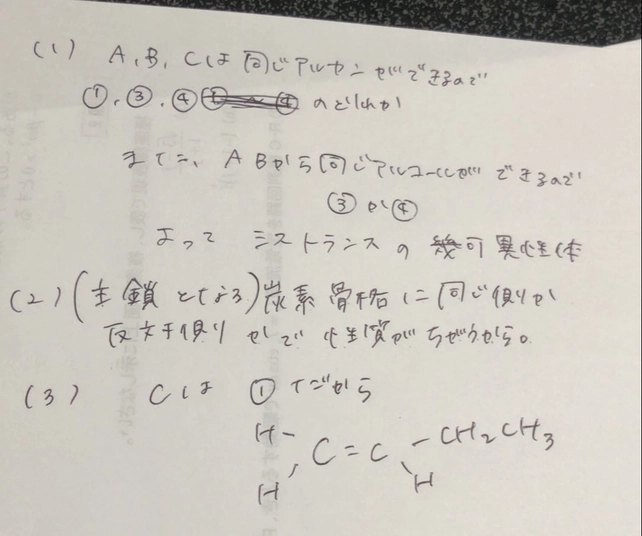 (1) A, B, Cは同じアルカンができるので
①, ③, ④ のどれか
また、ABから同じアルコールができるので
③か④
よって シストランスの幾何異性体
(2)(主鎖となる)炭素骨格に同じ側か
反対側かで性質がちがうから。
(3) Cは①だから
H C=C CH2CH3
H H